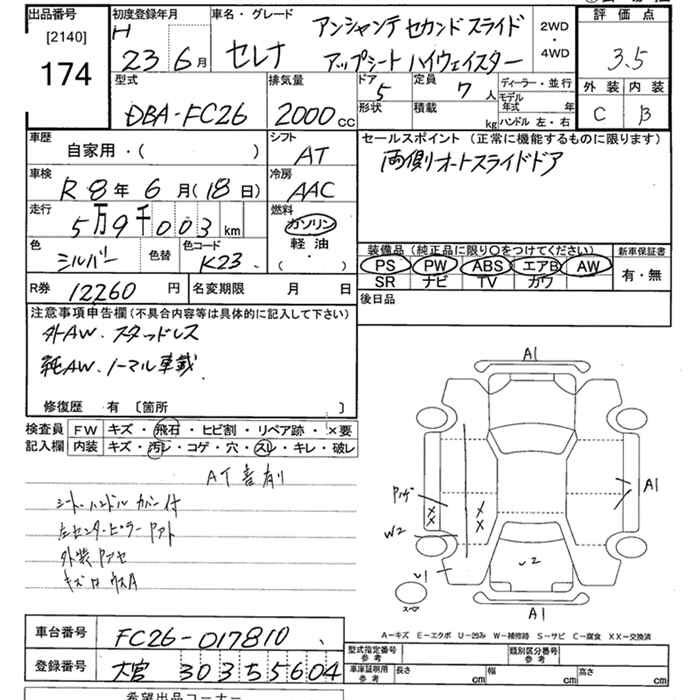 出品番号 [2140] 174
初度登録年月 H 23年 6月
車名・グレード セレナ アンシャンテ セカンド スライド
アップシート ハイウェイスター
2WD・4WD
評価点 3.5
外装 C 内装 B
型式 DBA-FC26
排気量 2000cc
ドア 5 定員 7人
形状 積載 kg
ディーラー・並行
モデル年式 年
ハンドル 左・右
車歴 自家用・( )
シフト AT
車検 R8年6月(18日)
冷房 AAC
走行 5万9千003km
燃料 ガソリン 軽油 ( ・ )
色 シルバー 色替 色コード K23
R券 12260円 名変期限 月 日
セールスポイント(正常に機能するものに限ります)
両側オートスライドドア
装備品(純正品に限り○をつけてください) 新車保証書
PS PW ABS エアB AW 有・無
SR ナビ TV カワ
後日品
注意事項申告欄(不具合内容等は具体的に記入して下さい)
外AW、スタッドレス
純AW、ノーマル車載
修復歴 有 〔箇所 〕
検査員記入欄 FW キズ・飛石・ヒビ割・リペア跡・×要
内装 キズ・汚レ・コゲ・穴・スレ・キレ・破レ
シート、ハンドルカバー付
左センターピラー
外装
キズ
A1
A1
A1
W2
U1
U2
××
××
スペア
A－キズ E－エクボ U－凹み W－補修跡 S－サビ C－腐食 XX－交換済
車台番号 FC26-017810
登録番号 大宮 303 55604
型式指定番号 参考 類別区分番号 参考
車庫証明用 参考 長さ cm 幅 cm 高さ cm
希望出品コーナー